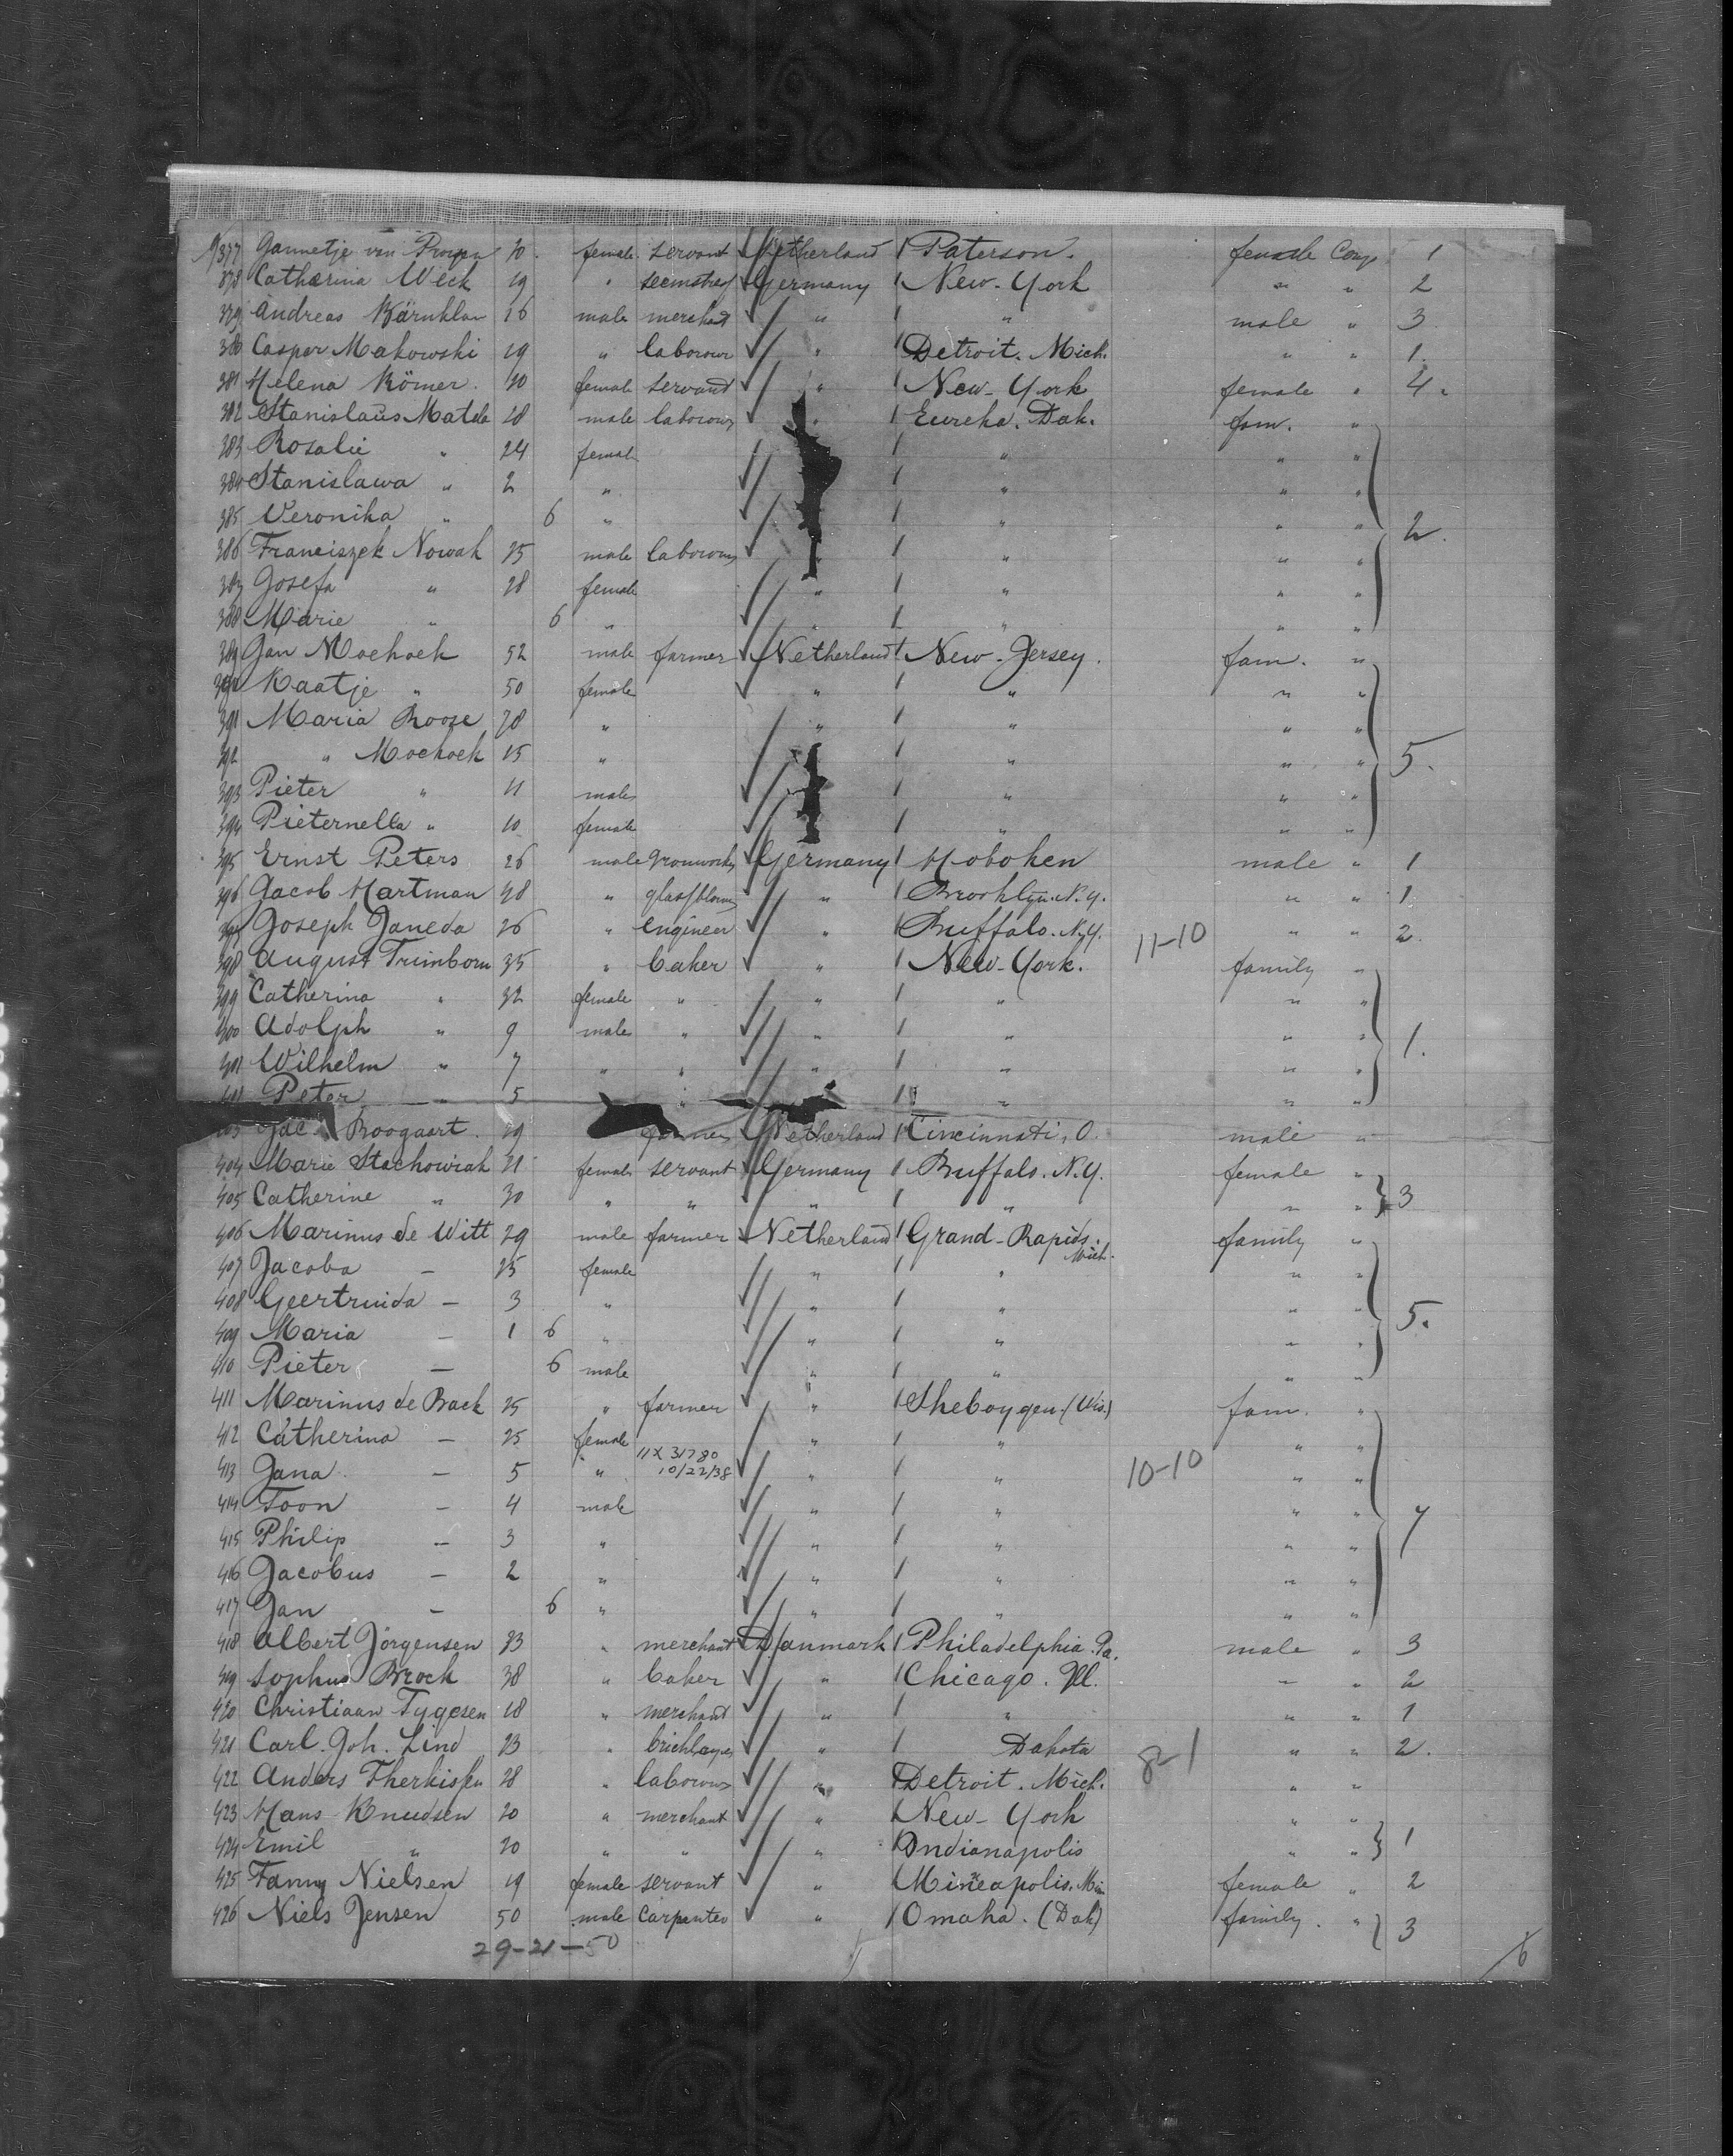 377 Jannetje van 20 female servant Netherland Paterson. female Comp 1
378 Catharina Weck 19 " seemstress Germany New-York " " 2
379 Andreas 26 male merchant " " male " 3
380 Casper Makowski 29 " labourer " Detroit. Mich. " " 1.
381 Helena Römer. 20 female servant " New-York female " 4.
382 Stanislaus 28 male labourer " Eureka. Dak. fam. "
383 Rosalie " 24 female " " "
384 Stanislawa " 2 " " " "
385 Veronika " 6 " " " " 2.
386 Franciszek Nowak 25 male labourer " " " "
387 Josefa " 28 female " " " "
388 Marie " 6 " " " " "
389 Jan Moehoek 52 male farmer Netherland New-Jersey. fam. "
390 Kaatje " 50 female " " " "
391 Maria Rooze 78 " " " " "
392 " Moehoek 15 " " " " 5.
393 Pieter " 11 male " " "
394 Pieternella " 10 female " " "
395 Ernst Peters 26 male Germany Hoboken male " 1
396 Jacob Hartman 48 " glassblower " Brooklyn. N.Y. " " 1.
397 Joseph Janeda 26 " engineer " Buffalo. N.Y. 11-10 " " 2.
398 August Trimborn 35 " baker " New-York. family "
399 Catherina " 32 female " " " " "
400 Adolph " 9 male " " " " "
401 Wilhelm " 7 " " " " " " 1.
Peter " 5 " " " "
Boogaart. 29 farmer Netherland Cincinnati, O. male "
404 Marie Stachowiak 21 female servant Germany Buffalo. N.Y. female "
405 Catherine " 30 " " " " " " 3
406 Marinus de Witt 29 male farmer Netherland Grand-Rapids. Mich. family "
407 Jacoba — 25 female " " " "
408 Geertruida — 3 " " " " "
409 Maria — 1 6 " " " " " 5.
410 Pieter — 6 male " " " "
411 Marinus de Back 25 " farmer " Sheboygen. (Wis.) fam. "
412 Catherina — 25 female " " " "
11X 31780
413 Jana — 5 " 10/22/38 " " 10-10 " "
414 Toon — 4 male " " " "
415 Philip — 3 " " " " " 7
416 Jacobus — 2 " " " " "
417 Jan — 6 " " " " "
418 Albert Jörgensen 23 " merchant Danmark Philadelphia Pa. male " 3
419 Sophus Brock 38 " baker " Chicago. Ill. " " 2
420 Christiaan Tygesen 18 " merchant " " " " 1
421 Carl. Joh. Lind 23 " bricklayer " Dakota 8-1 " " 2.
422 Anders 28 " labourer " Detroit. Mich. " "
423 Hans Knudsen 20 " merchant " New-York " "
424 Emil " 20 " " " Indianapolis " " 1
425 Fanny Nielsen 19 female servant " Mineapolis. Min female " 2
426 Niels Jensen 50 male carpenter " Omaha. (Dak) family. " 3
29-21-50
6